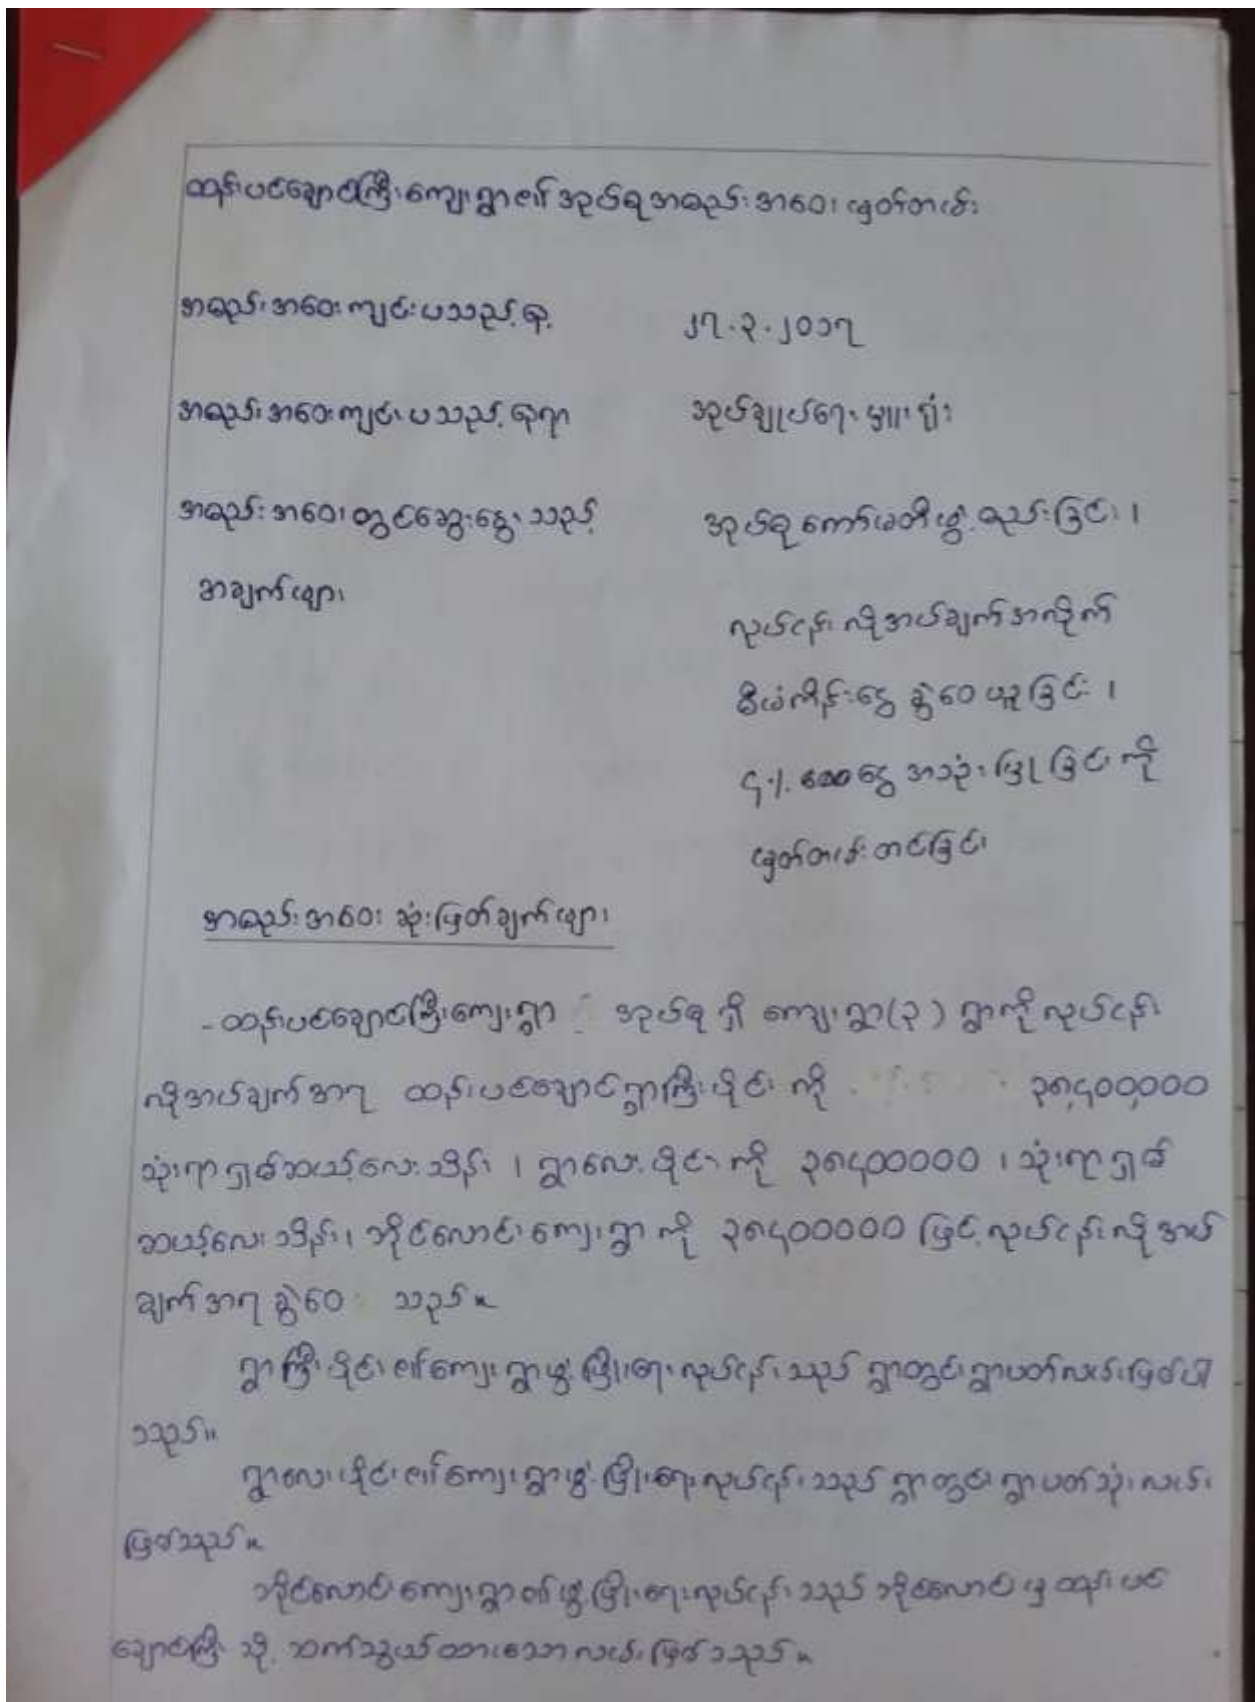 ထန်းပင်ချောင်ကြီးကျေးရွာ၏ အုပ်စုအစည်းအဝေး မှတ်တမ်း
အစည်းအဝေးကျင်းပသည့်နေ့ ၂၇.၃.၂၀၁၇
အစည်းအဝေးကျင်းပသည့်နေရာ အုပ်ချုပ်ရေးမှူးရုံး
အစည်းအဝေးတွင်ဆွေးနွေးသည့် အုပ်စုကော်မတီဖွဲ့စည်းခြင်း ၊
အချက်များ
လုပ်ငန်းလိုအပ်ချက်အလိုက်
စီမံကိန်းငွေ ခွဲဝေယူခြင်း ၊
၄.၂. ငွေ အသုံးပြုခြင်းကို
မှတ်တမ်းတင်ခြင်း
အစည်းအဝေး ဆုံးဖြတ်ချက်များ
- ထန်းပင်ချောင်ကြီးကျေးရွာ အုပ်စုရှိ ကျေးရွာ(၃) ရွာကိုလုပ်ငန်း
လိုအပ်ချက်အရ ထန်းပင်ချောင်ရွာကြီးပိုင်းကို ၃၈,၄၀၀,၀၀၀
သုံးရာရှစ်ဆယ့်လေးသိန်း ၊ ရွာလေးပိုင်းကို ၃၈၄၀၀၀၀၀ ၊ သုံးရာရှစ်
ဆယ့်လေးသိန်း ၊ ဘိုင်လောင်းကျေးရွာကို ၃၈၄၀၀၀၀၀ ဖြင့် လုပ်ငန်းလိုအပ်
ချက်အရ ခွဲဝေ သည်။
ရွာကြီးပိုင်း၏ကျေးရွာဖွံ့ဖြိုးရေးလုပ်ငန်းသည် ရွာတွင်းရွာပတ်လမ်းဖြစ်ပါ
သည်။
ရွာလေးပိုင်း၏ကျေးရွာဖွံ့ဖြိုးရေးလုပ်ငန်းသည် ရွာတွင်းရွာပတ်သုံးလမ်း
ဖြစ်သည်။
ဘိုင်လောင်းကျေးရွာ၏ဖွံ့ဖြိုးရေးလုပ်ငန်းသည် ဘိုင်လောင်းမှ ထန်းပင်
ချောင်ကြီးသို့ ဆက်သွယ်ထားသောလမ်းဖြစ်သည်။